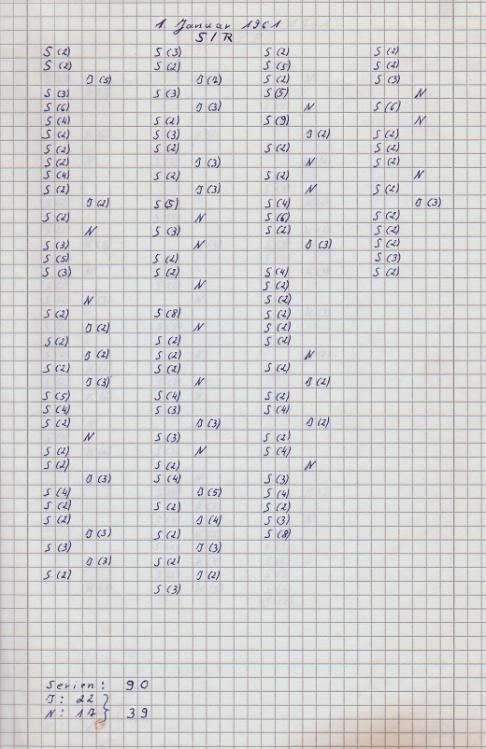 1. Januar 1961
S / R
S (2)
S (2)
J (3)
S (3)
S (6)
S (4)
S (2)
S (2)
S (2)
S (4)
S (2)
J (2)
S (2)
N
S (3)
S (5)
S (3)
N
S (2)
J (2)
S (2)
J (2)
S (2)
J (3)
S (5)
S (4)
S (2)
N
S (2)
S (2)
J (3)
S (4)
S (2)
S (2)
J (3)
S (3)
J (3)
S (2)
S (3)
S (2)
J (2)
S (3)
J (3)
S (2)
S (3)
S (2)
J (3)
S (2)
J (3)
S (5)
N
S (3)
N
S (2)
S (2)
N
S (8)
N
S (2)
S (2)
S (2)
N
S (4)
S (3)
J (3)
S (3)
N
S (2)
S (4)
J (5)
S (2)
J (4)
S (2)
J (3)
S (2)
J (2)
S (3)
S (2)
S (5)
S (2)
S (5)
N
S (9)
J (2)
S (2)
N
S (2)
N
S (4)
S (6)
S (2)
J (3)
S (4)
S (2)
S (2)
S (2)
S (2)
S (2)
N
S (2)
J (2)
S (2)
S (4)
J (2)
S (2)
S (4)
N
S (3)
S (4)
S (2)
S (3)
S (8)
S (2)
S (2)
S (3)
N
S (6)
N
S (2)
S (2)
S (2)
N
S (2)
J (3)
S (2)
S (2)
S (2)
S (3)
S (2)
Serien: 90
J: 22
N: 17 } 39